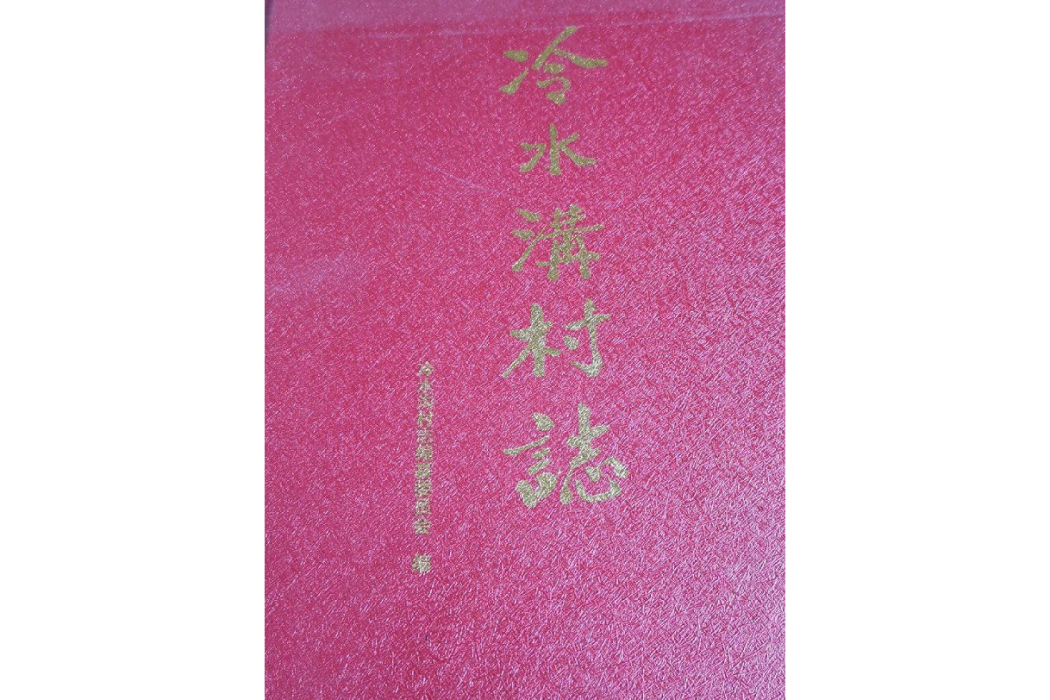 冷水溝村誌
冷水沟村志编纂委员会 编